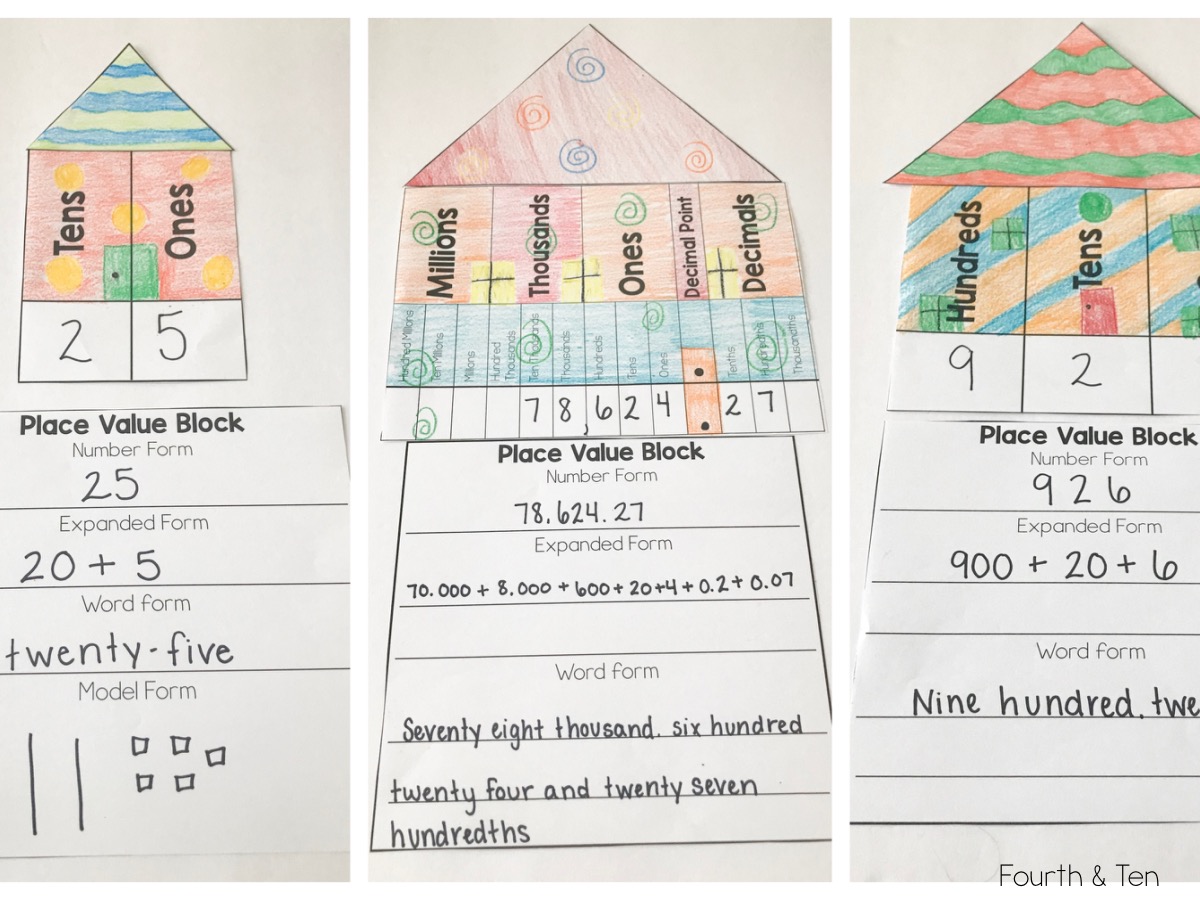 Tens
Ones
2 5
Place Value Block
Number Form
25
Expanded Form
20 + 5
Word form
twenty-five
Model Form
Millions
Thousands
Ones
Decimal Point
Decimals
Hundred Millions
Ten Millions
Millions
Hundred Thousands
Ten Thousands
Thousands
Hundreds
Tens
Ones
Tenths
Hundredths
Thousandths
7 8,6 2 4 . 2 7
Place Value Block
Number Form
78,624.27
Expanded Form
70,000 + 8,000 + 600 + 20 + 4 + 0.2 + 0.07
Word form
Seventy eight thousand, six hundred
twenty four and twenty seven
hundredths
Hundreds
Tens
9 2
Place Value Block
Number Form
926
Expanded Form
900 + 20 + 6
Word form
Nine hundred, twe
Fourth & Ten